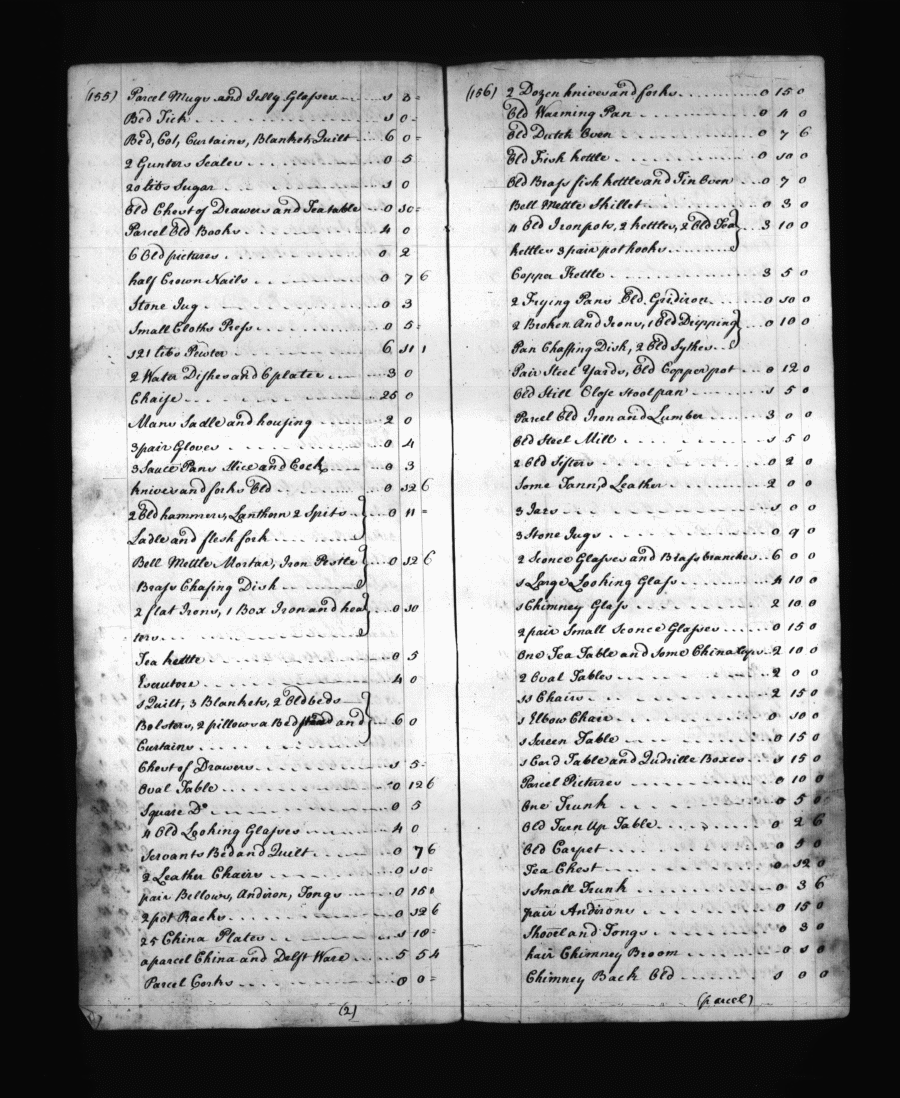 (155) Parcel Mugs and Jelly Glasses 1 3 =
Bed Tick 1 0 -
Bed, Cot, Curtains, Blanket, Quilt 6 0 =
2 Gunters Scales 0 5
20 libs Sugar 1 0
Old Chest of Drawers and Teatable 0 10 =
Parcel Old Books 4 0
6 Old pictures 0 2
half Crown Nails 0 7 6
Stone Jug 0 3
Small Cloths Press 0 5 =
121 libs Pewter 6 11 1
2 Water Dishes and 6 plates 3 0
Chaise 25 0
Mans Sadle and housing 2 0
3 pair Gloves 0 4
3 Sauce Pans Slice and Cock 0 3
knives and forks Old 0 12 6
2 Old hammers, Lanthorn 2 Spits 0 11 =
Ladle and flesh fork
Bell Mettle Mortar, Iron Pestle 0 12 6
Brass Chafing Dish
2 flat Irons, 1 Box Iron and hea 0 10
ters
Tea kettle 0 5
Escutore 4 0
1 Quilt, 3 Blankets, 2 Old beds
Bolsters, 2 pillows a Bedstead and 6 0
Curtains
Chest of Drawers 1 5 -
Oval Table 0 12 6
Square Do 0 5
4 Old Looking Glasses 4 0
Servants Bed and Quilt 0 7 6
2 Leather Chairs 0 10 -
pair Bellows, Andiron, Tongs 0 15 0
2 pot Racks 0 12 6
25 China Plates 1 18 =
a parcel China and Delft Ware 5 5 4
Parcel Corks 0 0 =
(2)
(156) 2 Dozen knives and forks 0 15 0
Old Warming Pan 0 4 0
Old Dutch Oven 0 7 6
Old Fish kettle 0 10 0
Old Brass fish kettle and Tin Oven 0 7 0
Bell Mettle Skillet 0 3 0
4 Old Iron pots, 2 kettles, 2 Old Tea 3 10 0
kettles 3 pair pot hooks
Copper Kettle 3 5 0
2 Frying Pans Old Gridiron 0 10 0
2 Broken And Irons, 1 Old Dripping 0 10 0
Pan Chaffing Dish, 2 Old Sythes
Pair Steel Yards, Old Copper pot 0 12 0
Old Still Close Stool pan 1 5 0
Parcel Old Iron and Lumber 3 0 0
Old Steel Mill 1 5 0
2 Old Sifters 0 2 0
Some Tann,d Leather 2 0 0
3 Jars 1 0 0
3 Stone Jugs 0 9 0
2 Sconce Glasses and Brass branches 6 0 0
1 Large Looking Glass 4 10 0
1 Chimney Glass 2 10 0
2 pair Small Sconce Glasses 0 15 0
One Tea Table and some China Cups 2 10 0
2 Oval Tables 2 0 0
11 Chairs 2 15 0
1 Elbow Chair 0 10 0
1 Screen Table 0 15 0
1 Card Table and Qudrille Boxes 1 15 0
Parcel Pictures 0 10 0
One Trunk 0 5 0
Old Turn Up Table 0 2 6
Old Carpet 0 5 0
Tea Chest 0 12 0
1 Small Trunk 0 3 6
pair Andirons 0 15 0
Shovel and Tongs 0 3 0
hair Chimney Broom 0 1 0
Chimney Back Old 1 0 0
(parcel)